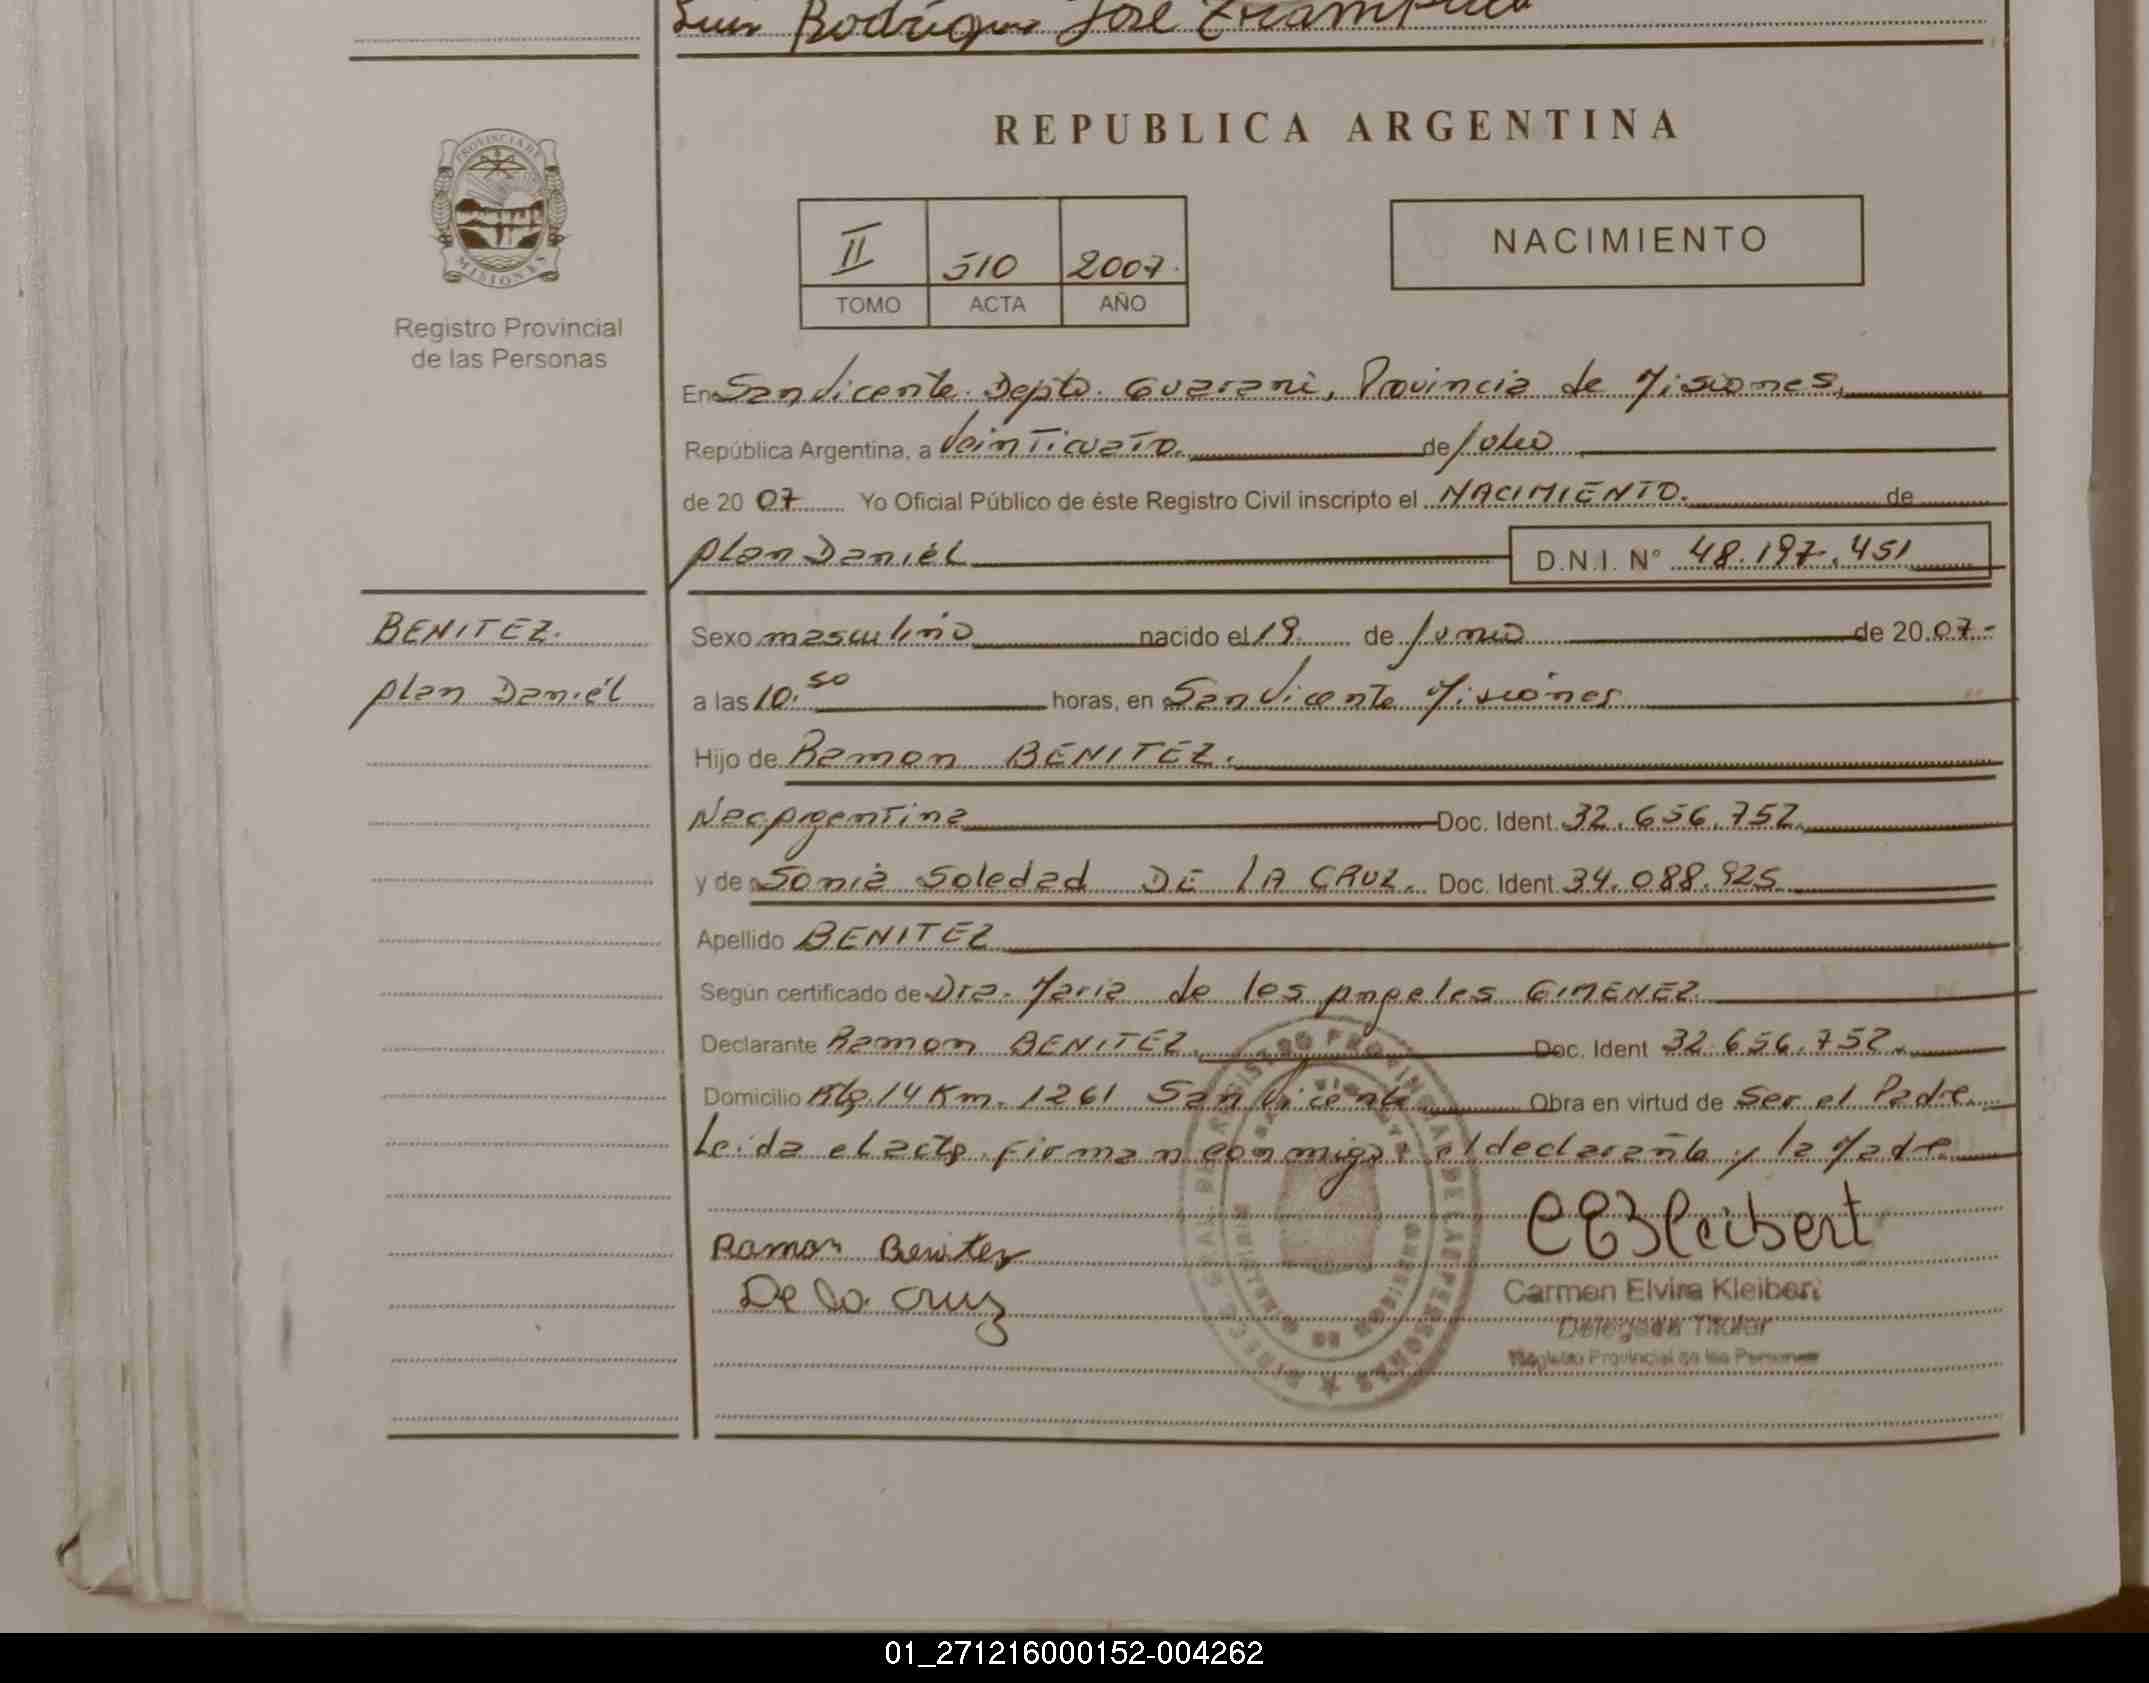 Luis Rodriguez José
REPUBLICA ARGENTINA
PROVINCIA DE MISIONES
Registro Provincial
de las Personas
II 510 2007.
TOMO ACTA AÑO
NACIMIENTO
En San Vicente. Depto. Guarani, Provincia de Misiones,
República Argentina, a Veinticuatro. de Julio
de 20 07 Yo Oficial Público de éste Registro Civil inscripto el NACIMIENTO. de
Alan Daniél D.N.I. N° 48.197.451
BENITEZ.
Alan Daniél
Sexo masculino nacido el 19 de Junio de 20 07-
a las 10.50 horas, en San Vicente Misiones
Hijo de Ramon BENITEZ.
Nac Argentina Doc. Ident. 32.656.752
y de Sonia Soledad DE LA CRUZ. Doc. Ident. 34.088.925
Apellido BENITEZ
Según certificado de Dra. Maria de los Angeles GIMENEZ
Declarante Ramon BENITEZ Doc. Ident 32.656.752.
Domicilio Rta. 14 Km. 1261 San Vicente Obra en virtud de Ser el Padre
Leida el acta, firman conmigo el declarante y la Madre
Ramon Benitez
De la Cruz
CEKleibert
Carmen Elvira Kleibert
Delegada Titular
Registro Provincial de las Personas
01_271216000152-004262